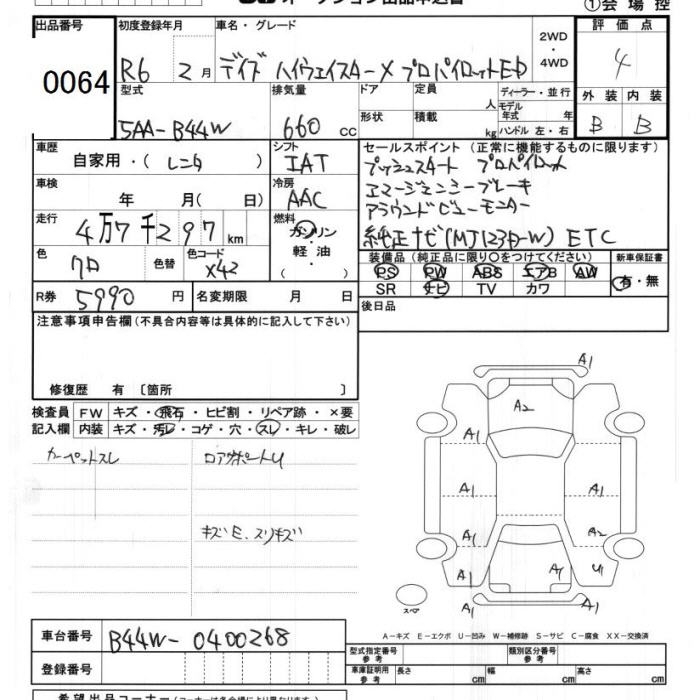 オークション出品申込書
①会場控
出品番号
0064
初度登録年月
R6 2月
車名・グレード
デイズ ハイウェイスターX プロパイロットED
2WD
・
4WD
評価点
4
型式
5AA-B44W
排気量
660 CC
ドア
定員
人
ディーラー・並行
形状
積載
kg
モデル年式 年
ハンドル 左・右
外装 内装
B B
車歴
自家用・( レンタ )
シフト
IAT
車検
年 月( 日)
冷房
AAC
走行
4万7千297km
燃料
ガソリン
・
軽油
・
( )
色
クロ
色替
色コード
X42
R券 5990円
名変期限 月 日
セールスポイント(正常に機能するものに限ります)
プッシュスタート プロパイロット
エマージェンシーブレーキ
アラウンドビューモニター
純正ナビ(MJ123D-W) ETC
装備品(純正品に限り○をつけてください)
PS PW ABS エアB AW
SR ナビ TV カワ
新車保証書
有・無
後日品
注意事項申告欄(不具合内容等は具体的に記入して下さい)
修復歴 有〔箇所 〕
検査員記入欄
FW キズ・飛石・ヒビ割・リペア跡・×要
内装 キズ・汚レ・コゲ・穴・スレ・キレ・破レ
カーペットスレ
ロアサポートU
キズE、スリキズ
A1
A2
A1
A1
A1
A1
A1
A2
A1
A1
A1
U1
A1
スペア
A-キズ E-エクボ U-凹み W-補修跡 S-サビ C-腐食 XX-交換済
車台番号 B44W-0400268
登録番号
型式指定番号 参考
類別区分番号 参考
車庫証明用 参考
長さ cm
幅 cm
高さ cm
希望出品コーナー(コーナーは各会場により異なります)